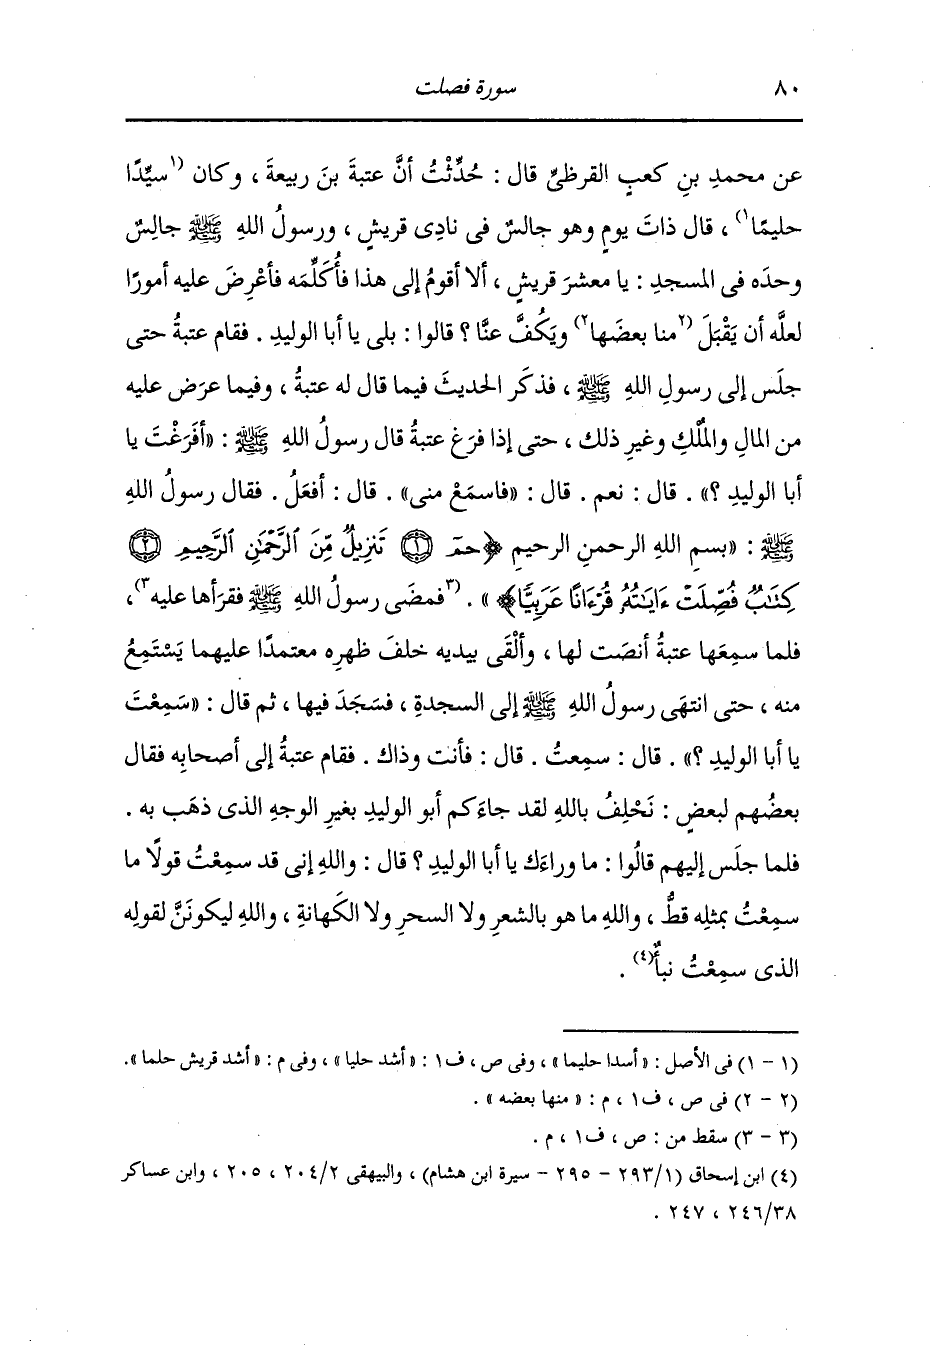 ٨٠ سورة فصلت
عن محمدِ بنِ كعبٍ القرظىِّ قال : حُدِّثْتُ أنَّ عتبةَ بنَ ربيعةَ ، وكان (١سيِّدًا
حليمًا١) ، قال ذاتَ يومٍ وهو جالسٌ فى نادِى قريشٍ ، ورسولُ اللهِ ﷺ جالِسٌ
وحدَه فى المسجدِ : يا معشرَ قريشٍ ، ألا أقومُ إلى هذا فأُكَلِّمَه فأعْرِضَ عليه أمورًا
لعلَّه أن يَقْبَلَ (٢منا بعضَها٢) ويَكُفَّ عنَّا ؟ قالوا : بلى يا أبا الوليدِ . فقام عتبةُ حتى
جلَس إلى رسولِ اللهِ ﷺ ، فذكَر الحديثَ فيما قال له عتبةُ ، وفيما عرَض عليه
من المالِ والمُلْكِ وغيرِ ذلك ، حتى إذا فرَغ عتبةُ قال رسولُ اللهِ ﷺ : «أفَرَغْتَ يا
أبا الوليدِ ؟» . قال : نعم . قال : «فاسمَعْ منى» . قال : أفعَلُ . فقال رسولُ اللهِ
ﷺ : «بسمِ اللهِ الرحمنِ الرحيمِ ﴿حمٓ ۝١ تَنزِيلٌ مِّنَ ٱلرَّحْمَٰنِ ٱلرَّحِيمِ ۝٢
كِتَٰبٌ فُصِّلَتْ ءَايَٰتُهُۥ قُرْءَانًا عَرَبِيًّا﴾ » . (٣فمضى رسولُ اللهِ ﷺ فقرَأها عليه٣) ،
فلما سمِعَها عتبةُ أنصَت لها ، وألْقَى بيديه خلفَ ظهرِه معتمدًا عليهما يَسْتَمِعُ
منه ، حتى انتهَى رسولُ اللهِ ﷺ إلى السجدةِ ، فسَجَدَ فيها ، ثم قال : «سَمِعْتَ
يا أبا الوليدِ ؟» . قال : سمِعتُ . قال : فأنت وذاك . فقام عتبةُ إلى أصحابِه فقال
بعضُهم لبعضٍ : نَحْلِفُ باللهِ لقد جاءَكم أبو الوليدِ بغيرِ الوجهِ الذى ذهَب به .
فلما جلَس إليهم قالُوا : ما وراءَك يا أبا الوليدِ ؟ قال : واللهِ إنى قد سمِعْتُ قولًا ما
سمِعْتُ بمثلِه قطُّ ، واللهِ ما هو بالشعرِ ولا السحرِ ولا الكَهانةِ ، واللهِ ليكونَنَّ لقولِه
الذى سمِعْتُ نبأٌ(٤) .
(١ - ١) فى الأصل : «أسدا حليما» ، وفى ص ، ف١ : «أشد حليا» ، وفى م : «أشد قريش حلما».
(٢ - ٢) فى ص ، ف١ ، م : «منها بعضه» .
(٣ - ٣) سقط من : ص ، ف١ ، م .
(٤) ابن إسحاق (٢٩٣/١ - ٢٩٥ - سيرة ابن هشام) ، والبيهقى ٢٠٤/٢ ، ٢٠٥ ، وابن عساكر
٢٤٦/٣٨ ، ٢٤٧ .